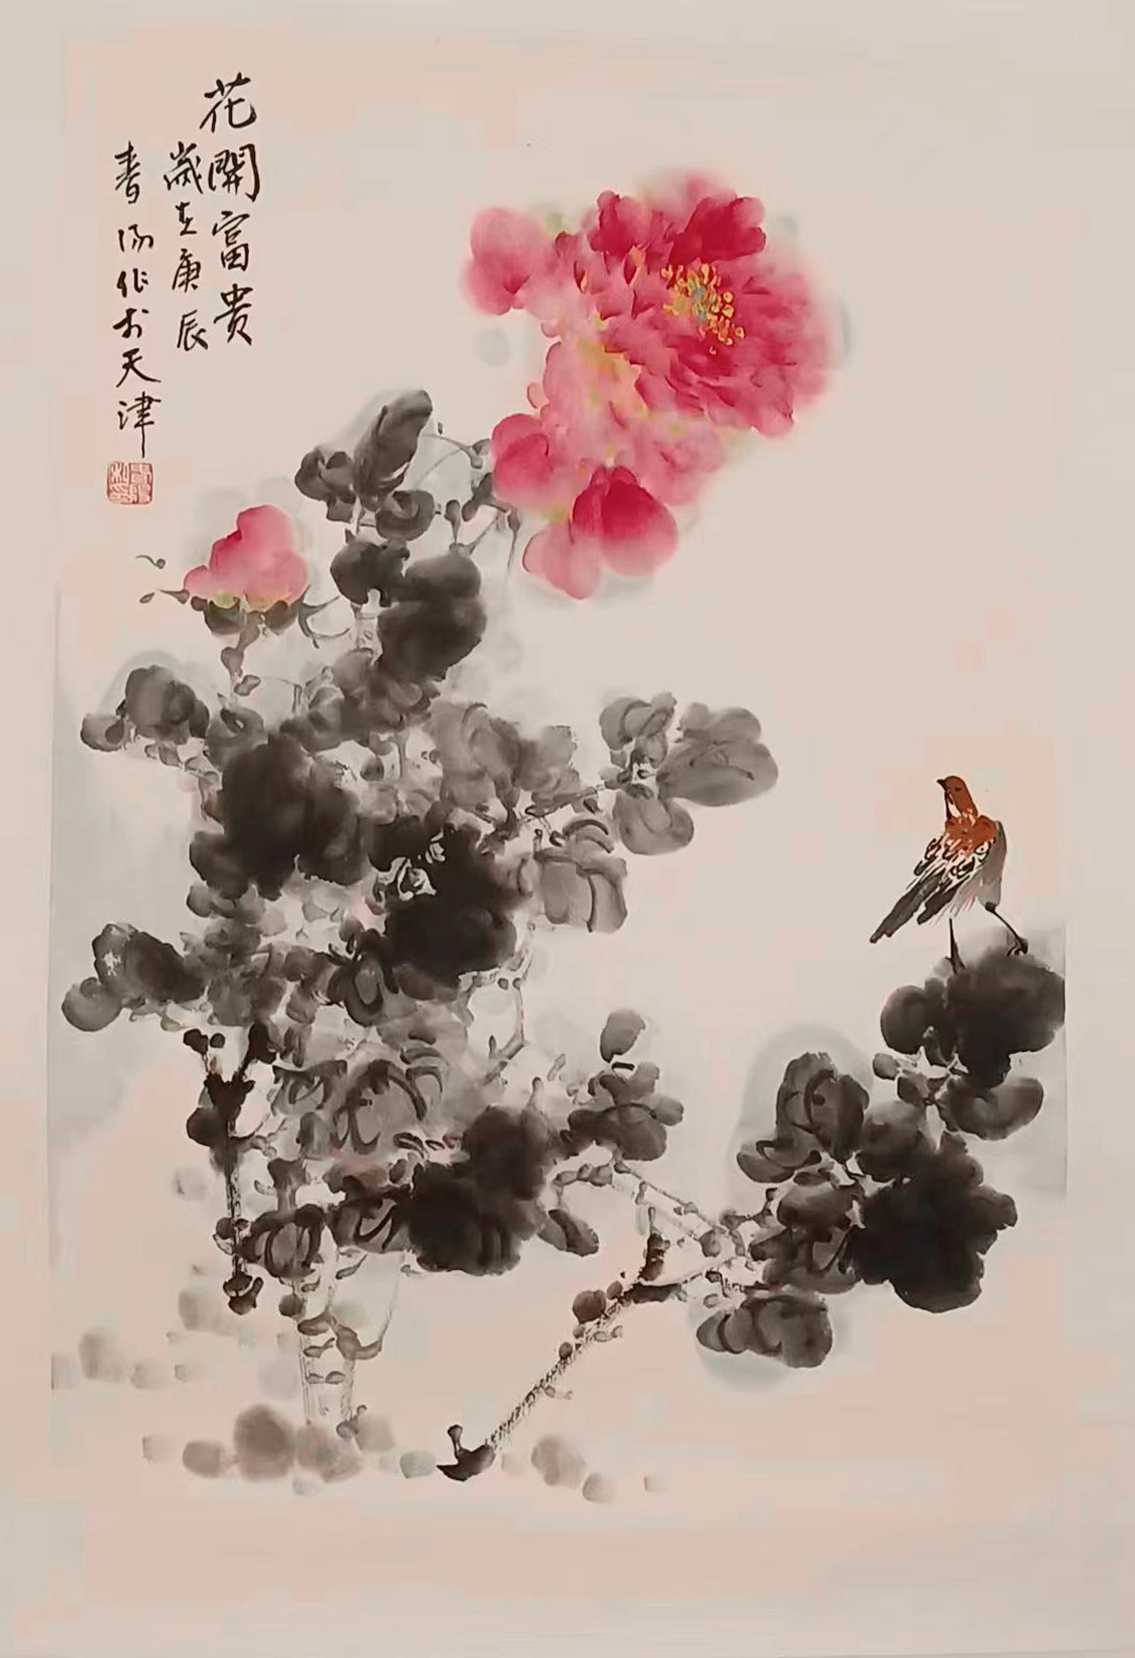 花開富贵
歲在庚辰
春陽作於天津